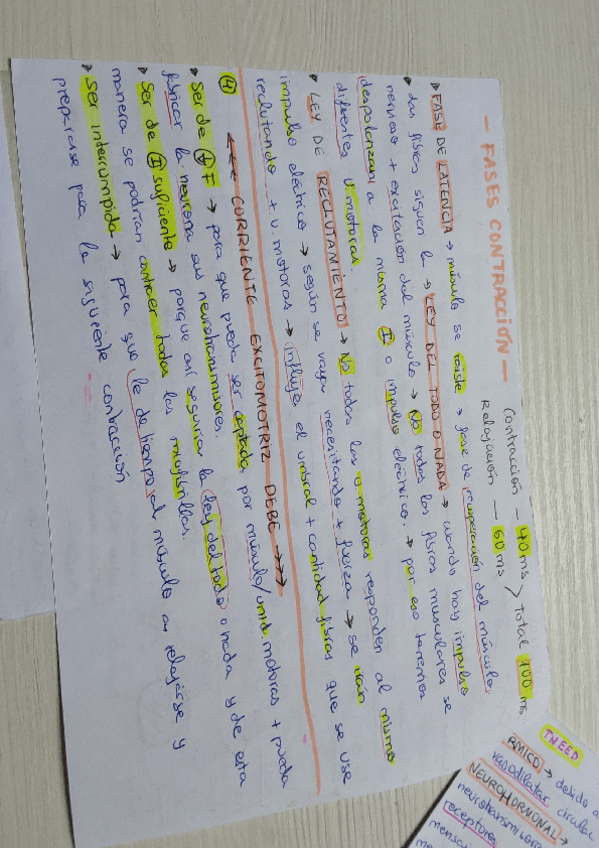 - FASES CONTRACCIÓN -
Contracción - 40 ms
Relajación - 60 ms > Total 100 ms
FASE DE LATENCIA → músculo se resiste → fase de recuperación del músculo.
Las fibras siguen la → LEY DEL TODO O NADA → cuando hay impulso
nervioso + excitación del músculo → No todas las fibras musculares se
despolarizan a la misma I o impulso eléctrico. → por eso tenemos
diferentes u. motoras.
LEY DE RECLUTAMIENTO → No todas las u. motoras responden al mismo
impulso eléctrico → según se vaya necesitando + fuerza → se irán
reclutando + u. motoras → influye el umbral + cantidad fibras que se use
<<< CORRIENTE EXCITOMOTRIZ DEBE >>>
④
Ser de ↓ F → para que pueda ser captada por músculo/unid. motoras + pueda
fabricar la neurona sus neurotransmisores.
Ser de I suficiente → porque así seguirá la ley del todo o nada y de esta
manera se podrían contraer todas las miofibrillas.
Ser interrumpida → para que le de tiempo al músculo a relajarse y
prepararse para la siguiente contracción
TNEED
→ debido a
vasodilatar, circular
NEUROHORMONAL →
neurotransmisores
receptores